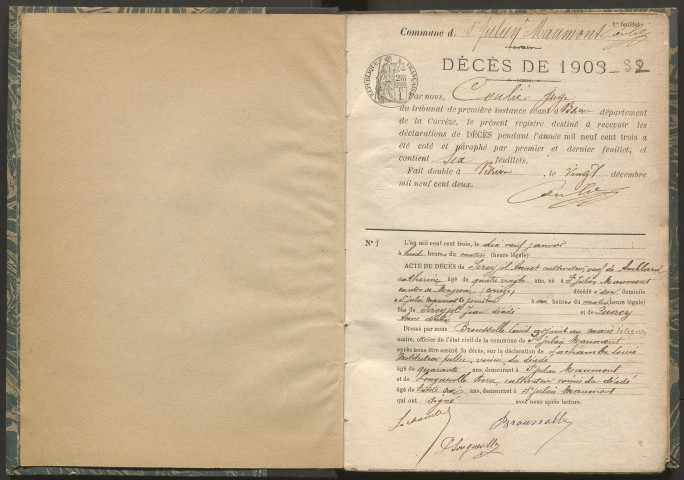 1er feuillet
Commune d St Julien Maumont
DÉCÈS DE 1903
RÉPUBLIQUE FRANÇAISE
Par nous, Coulié, Juge
du tribunal de première instance séant à Brive département
de la Corrèze, le présent registre destiné à recevoir les
déclarations de DÉCÈS pendant l'année mil neuf cent trois a
été coté et paraphé par premier et dernier feuillet, et
contient Six feuillets.
Fait double à Brive, le vingt décembre
mil neuf cent deux.
Coulié
N° 1 L'en mil neuf cent trois, le dix neuf janvier
à huit heures du matin (heure légale)
ACTE DE DÉCÈS de cultivateur, veuf de
catherine âgé de quatre vingts ans, né à St Julien Maumont
canton de Meyssac (Corrèze) décédé à son domicile
à St Julien Maumont le heures du matin (heure légale)
fils de Jean décédé et de
décédée
Dressé par nous Brousolle Louis adjoint au maire délégué
maire, officier de l'état civil de la commune de St Julien Maumont
après nous être assuré du décès, sur la déclaration de Lachambre Louis
Instituteur public, voisin du décédé
âgé de quarante ans, demeurant à St Julien Maumont
et de cultivateur voisin du décédé
âgé de ans, demeurant à St Julien Maumont
qui ont signé avec nous après lecture.
Lachambre Brousolle